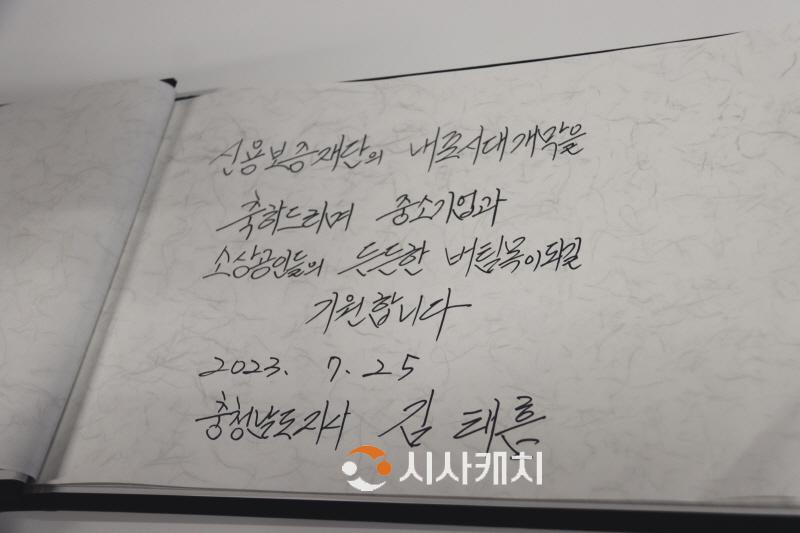 신용보증재단의 내포시대 개막을
축하드리며 중소기업과
소상공인들의 든든한 버팀목이 되길
기원합니다
2023. 7. 25
충청남도지사 김태흠
시사캐치